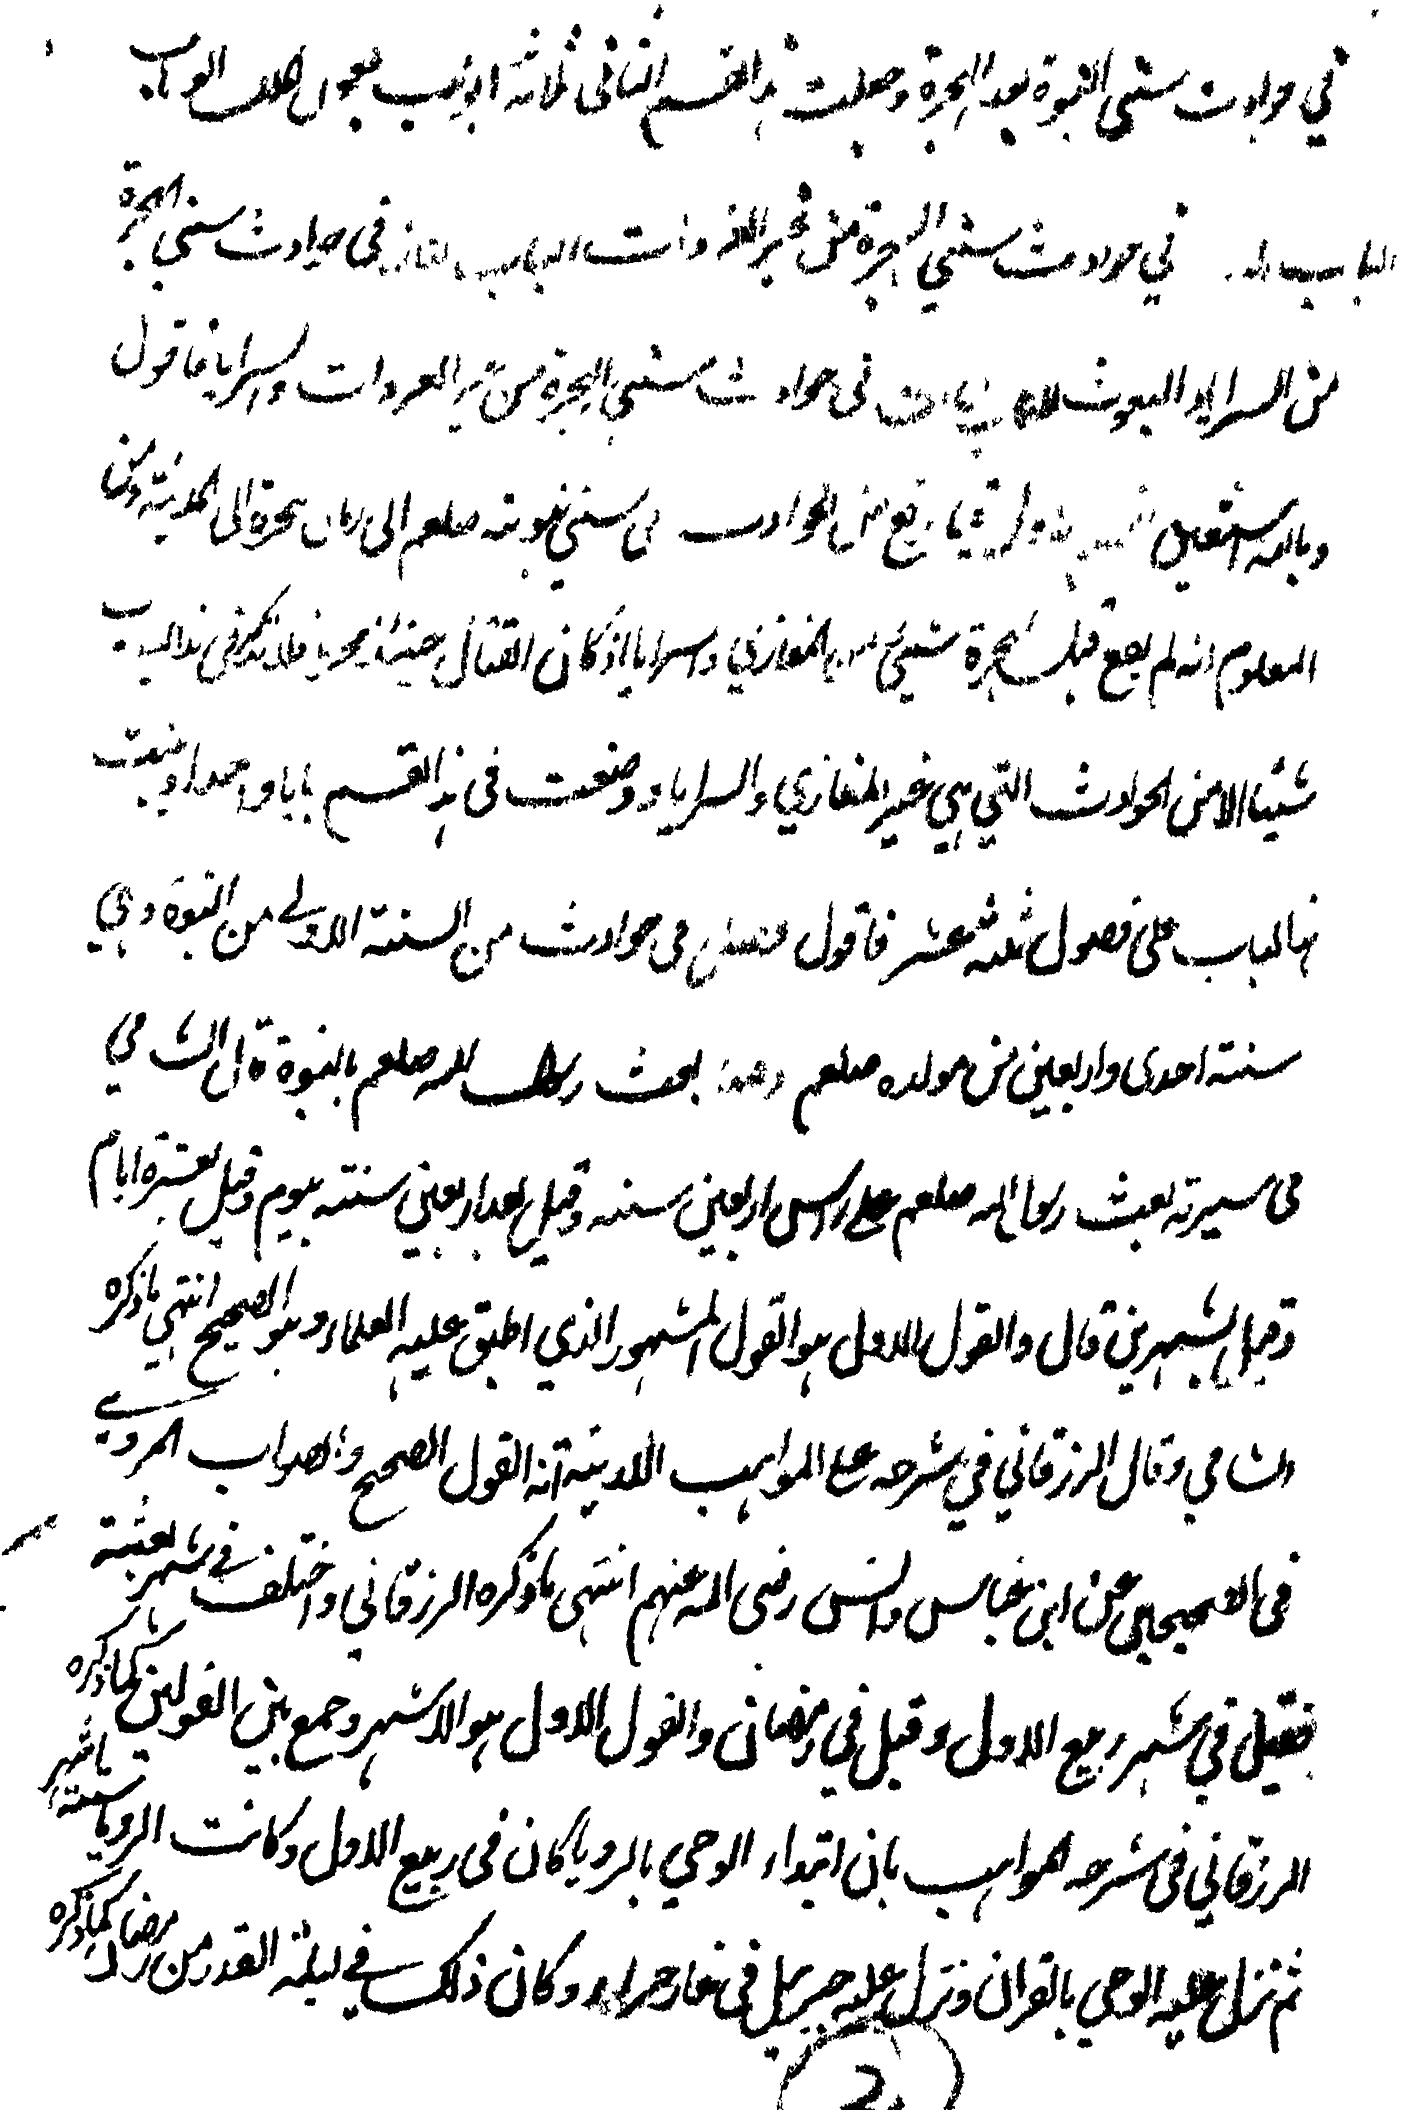 في حوادث سني النبوة بعد الهجرة وجعلت هذا القسم الثاني ثلاثة ابواب
الباب في حوادث سني الهجرة من غير الغزوات الباب في حوادث سني الهجرة
من السرايا والبعوث الباب في حوادث سني الهجرة من غير الغزوات والسرايا فاقول
وبالله استعين فيما وقع من الحوادث في سني نبوته صلعم الى زمان هجرة الى المدينة ومن
المعلوم انه لم يقع قبل الهجرة شيئ من المغازي والسرايا اذ كان القتال حينئذ فلا نذكر في هذا الباب
شيئا الا من الحوادث التي هي غير المغازي والسرايا ووضعت في هذا القسم بابا واحدا وبنيت
هذا الباب على فصول ثلثة عشر فاقول فصل في حوادث من السنة الاولى من النبوة وهي
سنة احدى واربعين من مولده صلعم بعث رسول الله صلعم بالنبوة قال الشامي
في سيرته بعث رسول الله صلعم على راس اربعين سنة وقيل بعد اربعين سنة بيوم وقيل بعشرة ايام
وقيل بشهرين قال والقول الاول هو القول المشهور الذي اطبق عليه العلماء وهو الصحيح انتهي ما ذكره
الشامي وقال الزرقاني في شرحه على المواهب اللدنية انه القول الصحيح والصواب المروي
في الصحيحين عن ابن عباس وانس رضى الله عنهم انتهى ما ذكره الزرقاني واختلف في شهر بعثته
فقيل في شهر ربيع الاول وقيل في رمضان والقول الاول هو الاشهر وجمع بين القولين كما ذكره
الزرقاني في شرحه المواهب بان ابتداء الوحي بالرويا كان في ربيع الاول وكانت الرويا ستة اشهر
ثم نزل عليه الوحي بالقران ونزل عليه جبريل في غار حراء وكان ذلك في ليلة القدر من رمضان كما ذكره